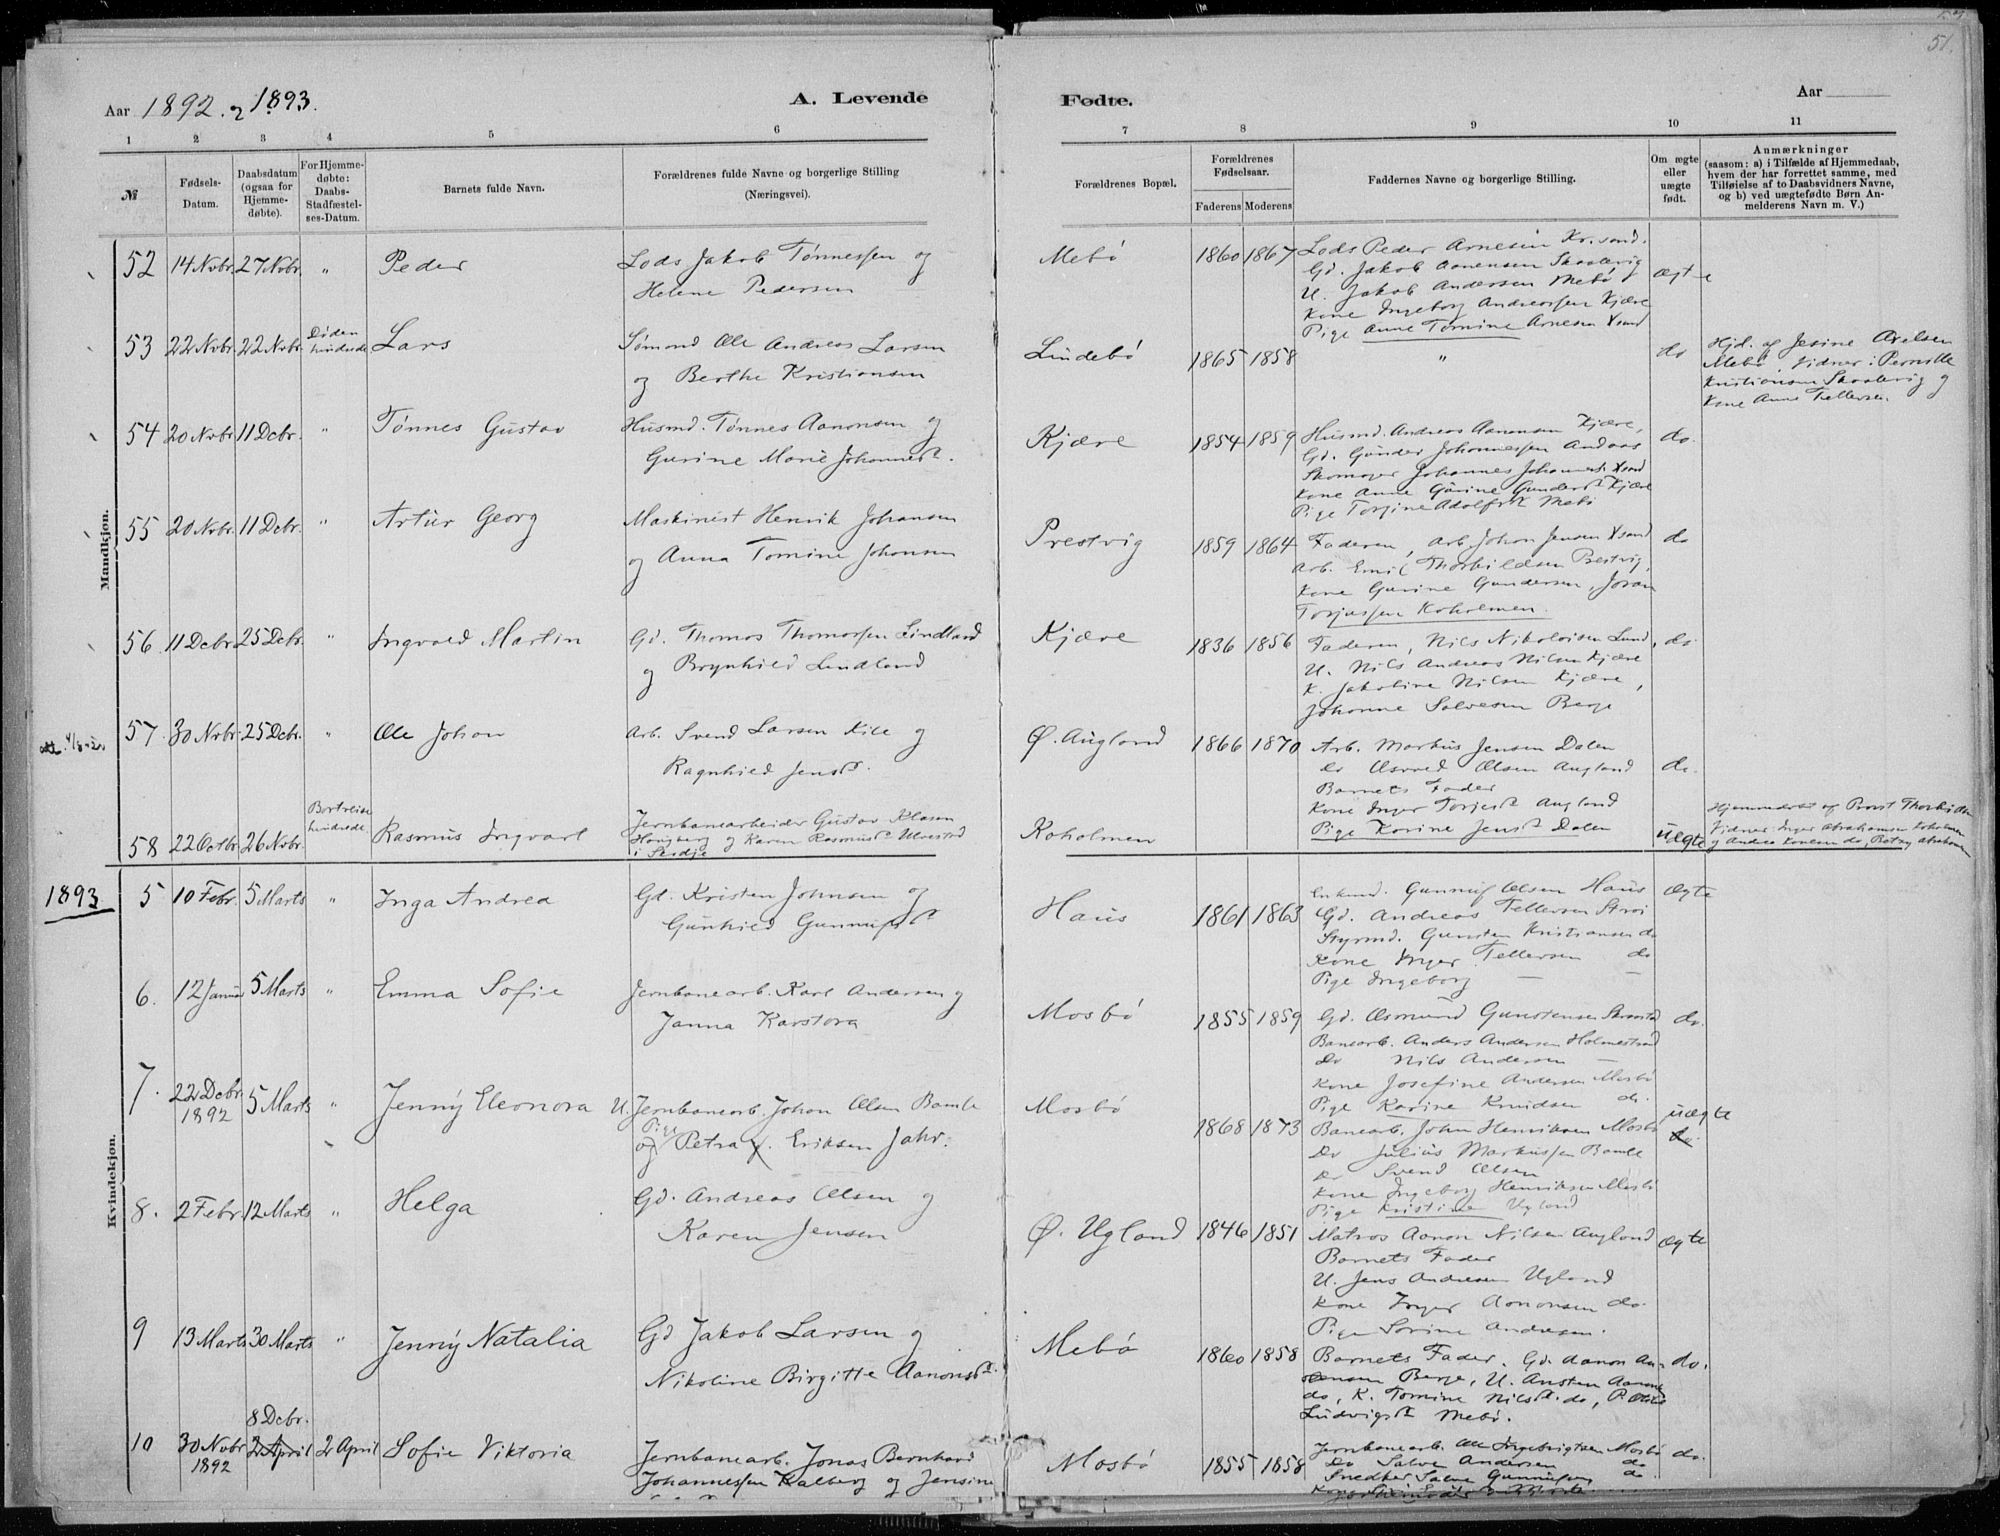 51.
Aar 1892 og 1893.
A. Levende Fødte.
Aar
1 2 3 4 5 6 7 8 9 10 11
№
Fødsels-
Datum.
Daabsdatum
(ogsaa for
Hjemme-
døbte).
For Hjemme-
døbte:
Daabs-
Stadfæstel-
ses-Datum.
Barnets fulde Navn.
Forældrenes fulde Navne og borgerlige Stilling
(Næringsvei).
Forældrenes Bopæl.
Forældrenes
Fødselsaar.
Faderens Moderens
Faddernes Navne og borgerlige Stilling.
Om ægte
eller
uægte
født.
Anmærkninger
(saasom: a) i Tilfælde af Hjemmedaab,
hvem der har forrettet samme, med
Tilføielse af to Daabsvidners Navne,
og b) ved uægtefødte Børn An-
melderens Navn m. V.)
Mandkjøn.
52 14 Nvbr. 27 Nvbr. " Peder
Lods Jakob Tønnessen og
Helene Pedersen
Mebø 1860 1867
Lods Peder Arnesen Kr.sand.
Gd. Jakob Aanensen Skaalevig
U. Jakob Andersen Mebø
Kone Ingeborg Andreassen Kjære
Pige Anne Tomine Arnesen Xsand
ægte
53 22 Nvbr. 22 Nvbr.
Døden
hindrede
Lars
Sømand Ole Andreas Larsen
og Berthe Kristiansen
Lindebø 1865 1858 " do
Hjd. af Jesine Axelsen
Mebø, Vidner: Pernille
Kristiansen Skaalevig og
Kone Anne Tellersen.
54 20 Nvbr. 11 Dcbr. " Tønnes Gustav
Husmd. Tønnes Aanonsen og
Gurine Marie Johannesd.
Kjære 1854 1859
Husmd. Andreas Aanonsen Kjære,
Gd. Gunder Johannessen Andaas
Skomager Johannes Johannes. Xsand
Kone Anne Gurine Gundersd. Kjære
Pige Torgine Adolfsd. Mebø
do.
55 20 Nvbr. 11 Dcbr. " Artur Georg
Maskinist Henrik Johansen
og Anna Tomine Johansen
Prestvig 1859 1864
Faderen, Arb. Johan Jensen Xsand
Arb. Emil Thorkildsen Prestvig,
Kone Gurine Gundersen, Joran
Torjussen Koholmen.
do
56 11 Dcbr. 25 Dcbr. " Ingvald Martin
Gd. Thomas Thomassen Lindland
og Brynhild Lindland
Kjære 1836 1856
Faderen, Nils Nikolaisen Lund,
U. Nils Andreas Nilsen Kjære
K. Jakoline Nilsen Kjære,
Johanne Salvesen Berge
do
57. 30 Nvbr. 25 Dcbr. " Ole Johan
Arb. Svend Larsen Kile og
Ragnhild Jensd.
Ø. Augland 1866 1870
Arb. Markus Jensen Dalen
do Osvald Olsen Augland
Barnets Fader
Kone Inger Torjesd. Augland
Pige Karine Jensd. Dalen
do.
58 22 Octbr. 26 Nvbr.
Bortreise
hindrede.
Rasmus Ingvart
Jernbanearbeider Gustav Klasen
Haugberg og Karen Rasmusd. Ulvestad
i Seidje
Koholmen uægte
Hjemmedøbt af Provst
Vidner: Inger Abrahamsen Koholmen
og Andrea do, Betzy Abrahamsen
1893
Kvindekjøn.
5 10 Febr. 5 Marts " Inga Andrea
Gd. Kristen Johnsen og
Gunhild Gunnufsd.
Haus 1861 1863
Enkmd. Gunnuf Olsen Haus
Gd. Andreas Tellersen Stroi
Styrmd. Gunsten Kristiansen do
Kone Inger Tellersen do
Pige Ingeborg — —
Ægte
6. 12 Januar 5 Marts " Emma Sofie
Jernbanearb. Karl Andersen og
Janna Karstora
Mosbø 1855 1859
Gd. Osmund Gunstensen
Banearb. Anders Andersen Holmestrand
Do Nils Andersen —
Kone Josefine Andersen Mosbø
Pige Karine Knudsen do.
do.
7. 22 Dcbr.
1892
5 Marts " Jenny Eleonora
U. Jernbanearb. Johan Olsen Bamle
Pige
og Petra Eriksen Jahr.
Mosbø 1868 1873
Banearb. John Henriksen Mosbø
Do Julius Markussen Bamle
Do Svend Olsen
Kone Ingeborg Henriksen Mosbø
Pige Kristine Ugland
uægte
do.
8. 2 Febr. 12 Marts " Helga
Gd. Andreas Olsen og
Karen Jensen
Ø. Ugland 1846 1851
Matros Aanon Nilsen Augland
Barnets Fader
U. Jens Andresen Ugland
Kone Inger Aanonsen do.
Pige Sorine Andresen.
Ægte
9 13 Marts 30 Marts " Jenny Natalia
Gd Jakob Larsen og
Nikoline Birgitte Aanonsd.
Mebø 1860 1858
Barnets Fader. Gd. Aanon An-
Berge, U. Ansten
do, K. Tomine Nilsd. do, P.
Ludvigsd. Mebø.
do.
10 30 Nvbr
1892
8 Dcbr.
2 April 2 April Sofie Viktoria
Jernbanearb. Jonas Bernhard
Johannessen Kalberg og Jensine
Mosbø 1855 1858
Jernbanearb. Ole Ingebrigtsen Mosbø
Do Salve Andersen do
Snedker Salve Gunnufsen do
do.